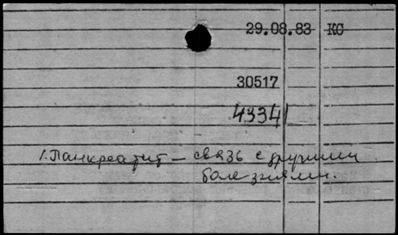 29.08.83 КС
30517
43341
1. Панкреатит – связь с другими
болезнями.